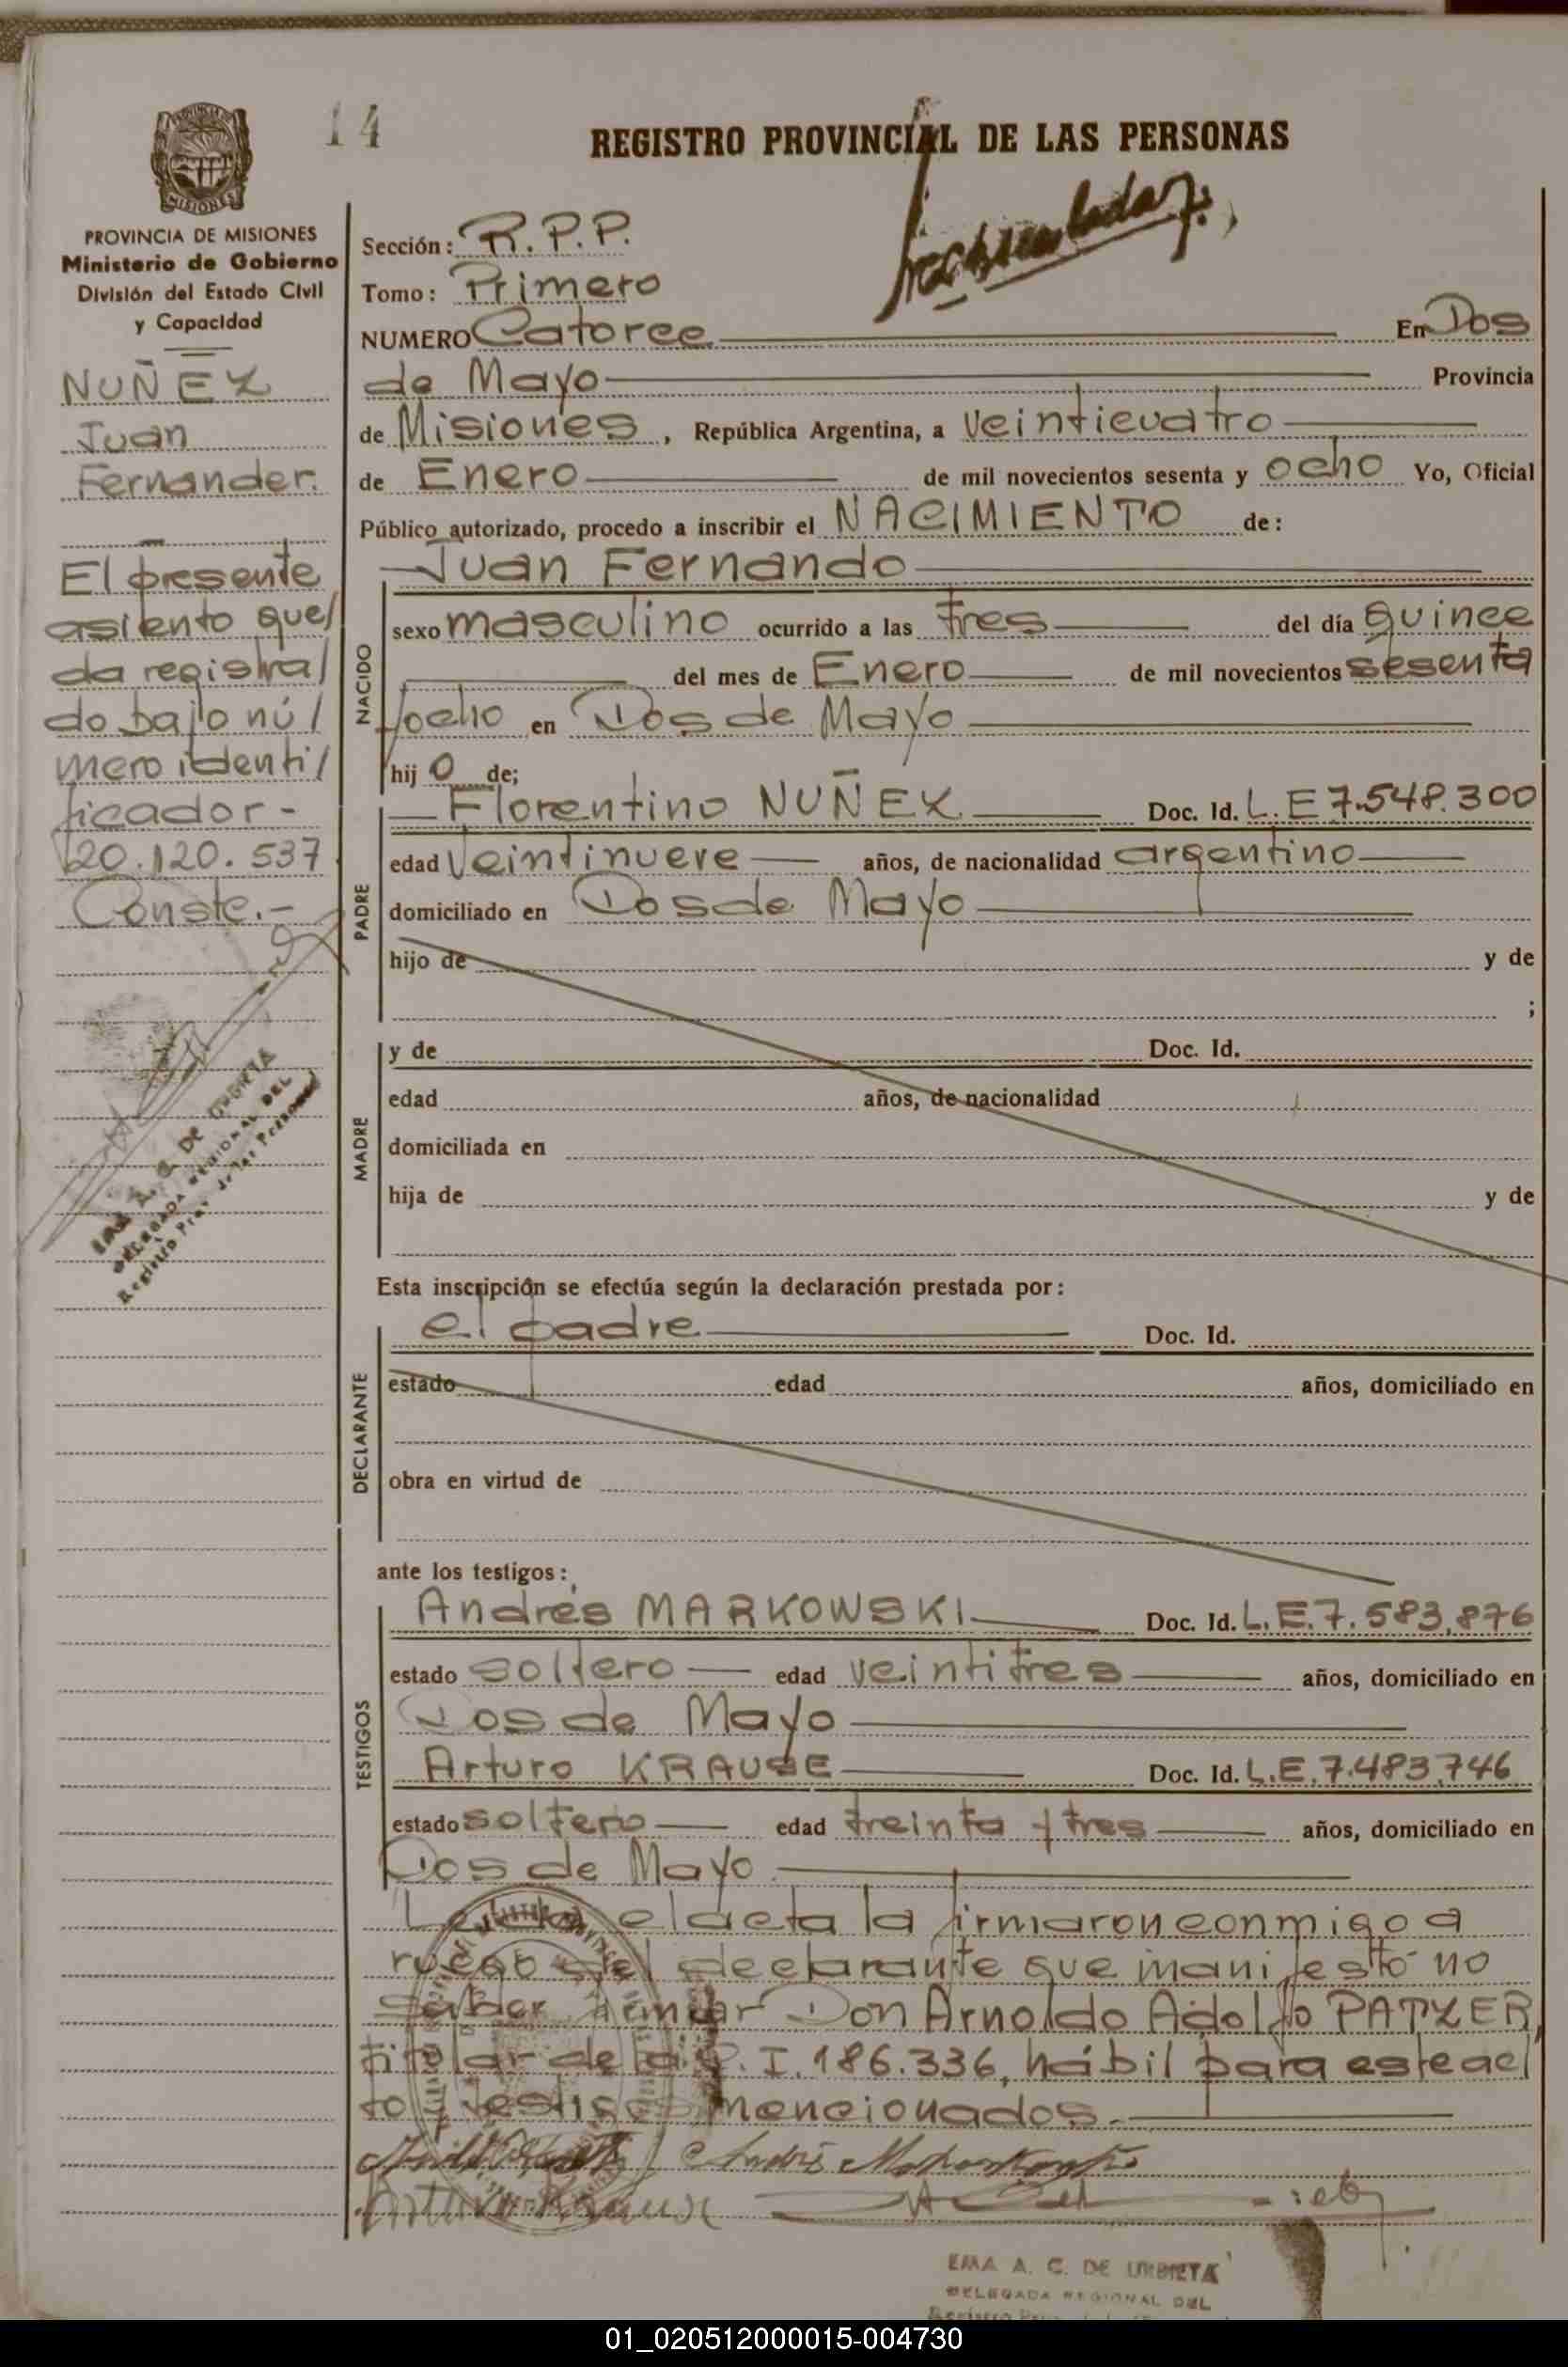 14
REGISTRO PROVINCIAL DE LAS PERSONAS
PROVINCIA DE MISIONES
Ministerio de Gobierno
División del Estado Civil
y Capacidad
NUÑEZ
Juan
Fernander.
El presente
asiento que/
da registra/
do bajo nú/
mero identi/
ficador-
20.120.537
Conste.-
DELEGADA REGIONAL DEL
Registro Prov. de las Personas
Sección: R.P.P.
Tomo: Primero
NUMERO Catorce En Dos
de Mayo Provincia
de Misiones, República Argentina, a veinticuatro
de Enero de mil novecientos sesenta y ocho Yo, Oficial
Público autorizado, procedo a inscribir el NACIMIENTO de:
Juan Fernando
NACIDO
sexo masculino ocurrido a las tres del día quince
del mes de Enero de mil novecientos sesenta
yocho en Dos de Mayo
hij o de;
PADRE
Florentino NUÑEZ Doc. Id. L.E 7.548.300
edad veintinueve años, de nacionalidad argentino
domiciliado en Dos de Mayo
hijo de y de
;
MADRE
y de Doc. Id.
edad años, de nacionalidad
domiciliada en
hija de y de
Esta inscripción se efectúa según la declaración prestada por:
DECLARANTE
el padre Doc. Id.
estado edad años, domiciliado en
obra en virtud de
ante los testigos:
TESTIGOS
Andrés MARKOWSKI Doc. Id. L.E.7.583.876
estado soltero edad veintitres años, domiciliado en
Dos de Mayo
Arturo KRAUSE Doc. Id. L.E.7.483.746
estado soltero edad treinta y tres años, domiciliado en
Dos de Mayo
Leida el acta la firmaron conmigo a
ruego del declarante que manifestó no
saber firmar Don Arnoldo Adolfo PATZER,
titular de la C.I.186.336, hábil para este ac/
to y testigos mencionados.
EMA A. C. DE URBIETA
DELEGADA REGIONAL DEL
01_020512000015-004730